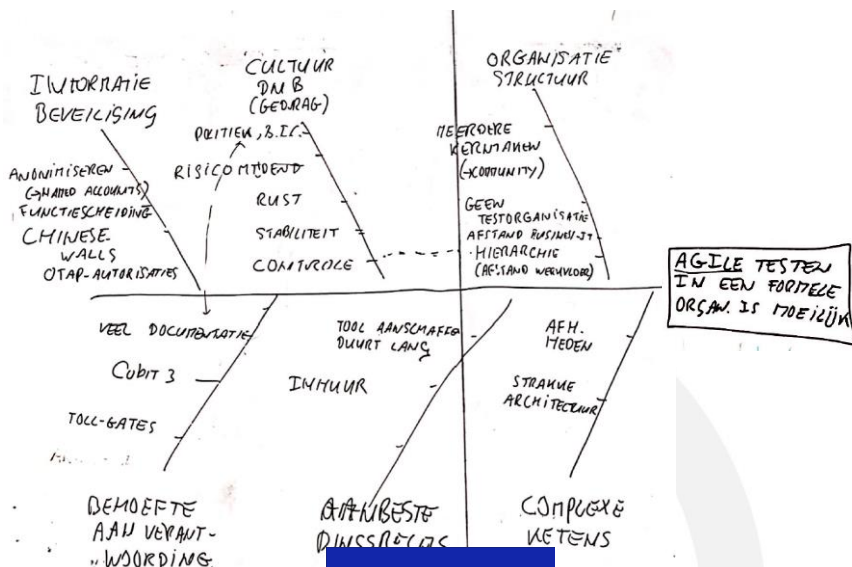 INFORMATIE
BEVEILIGING
ANONIMISEREN
ACCOUNTS)
FUNCTIESCHEIDING
CHINESE-
WALLS
OTAP-AUTORISATIES
CULTUUR
DNB
(GEDRAG)
POLITIEK, B.I.C.
RISICOMIJDEND
RUST
STABILITEIT
CONTROLE
ORGANISATIE
STRUCTUUR
MEERDERE
KERNTAKEN
(→COMMUNITY)
GEEN
TESTORGANISATIE
AFSTAND BUSINESS-IT
HIERARCHIE
(AFSTAND WERKVLOER)
AGILE TESTEN
IN EEN FORMELE
ORGAN. IS MOEILIJK
VEEL DOCUMENTATIE
Cobit 3
TOLL-GATES
BEHOEFTE
AAN VERANT-
WOORDING
TOOL AANSCHAFFEN
DUURT LANG
INHUUR
AANBESTE
DINGSREGELS
AFH.
HEDEN
STRAKKE
ARCHITECTUUR
COMPLEXE
KETENS